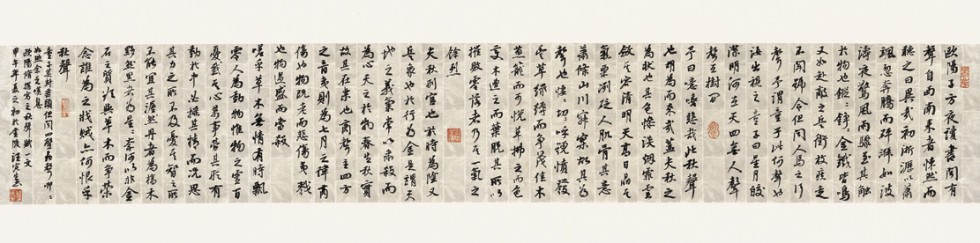 歐陽子方夜讀書聞有
聲自西南來者悚然而
聽之曰異哉初淅瀝以蕭
颯忽奔騰而砰湃如波
濤夜驚風雨驟至其觸
於物也鏦鏦錚錚金鐵皆鳴
又如赴敵之兵銜枚疾走
不聞號令但聞人馬之行
聲予謂童子此何聲也
汝出視之童子曰星月皎
潔明河在天四無人聲
聲在樹間
予曰噫嘻悲哉此秋聲
也胡為而來哉蓋夫秋之
為狀也其色慘淡煙霏雲
斂其容清明天高日晶其
氣慄冽砭人肌骨其意
蕭條山川寂寥故其為
聲也淒淒切切呼號憤發
豐草綠縟而爭茂佳木
蔥蘢而可悅草拂之而色
變木遭之而葉脫其所以
摧敗零落者乃其一氣之
餘烈
夫秋刑官也於時為陰又
兵象也於行為金是謂天
地之義氣常以肅殺而
為心天之於物春生秋實
故其在樂也商聲主西方
之音夷則為七月之律商
傷也物既老而悲傷夷戮
也物過盛而當殺
嗟乎草木無情有時飄
零人為動物惟物之靈百
憂感其心萬事勞其形有
動於中必搖其精而況思
其力之所不及憂其智之所
不能宜其渥然丹者為槁木
黟然黑者為星星奈何以非金
石之質欲與草木而爭榮
念誰為之戕賊亦何恨乎
秋聲
童子莫對垂頭而睡但聞四壁蟲聲唧唧
如助余之嘆息
歐陽修撰寫之秋聲賦一文
甲午年夏之初於金陵